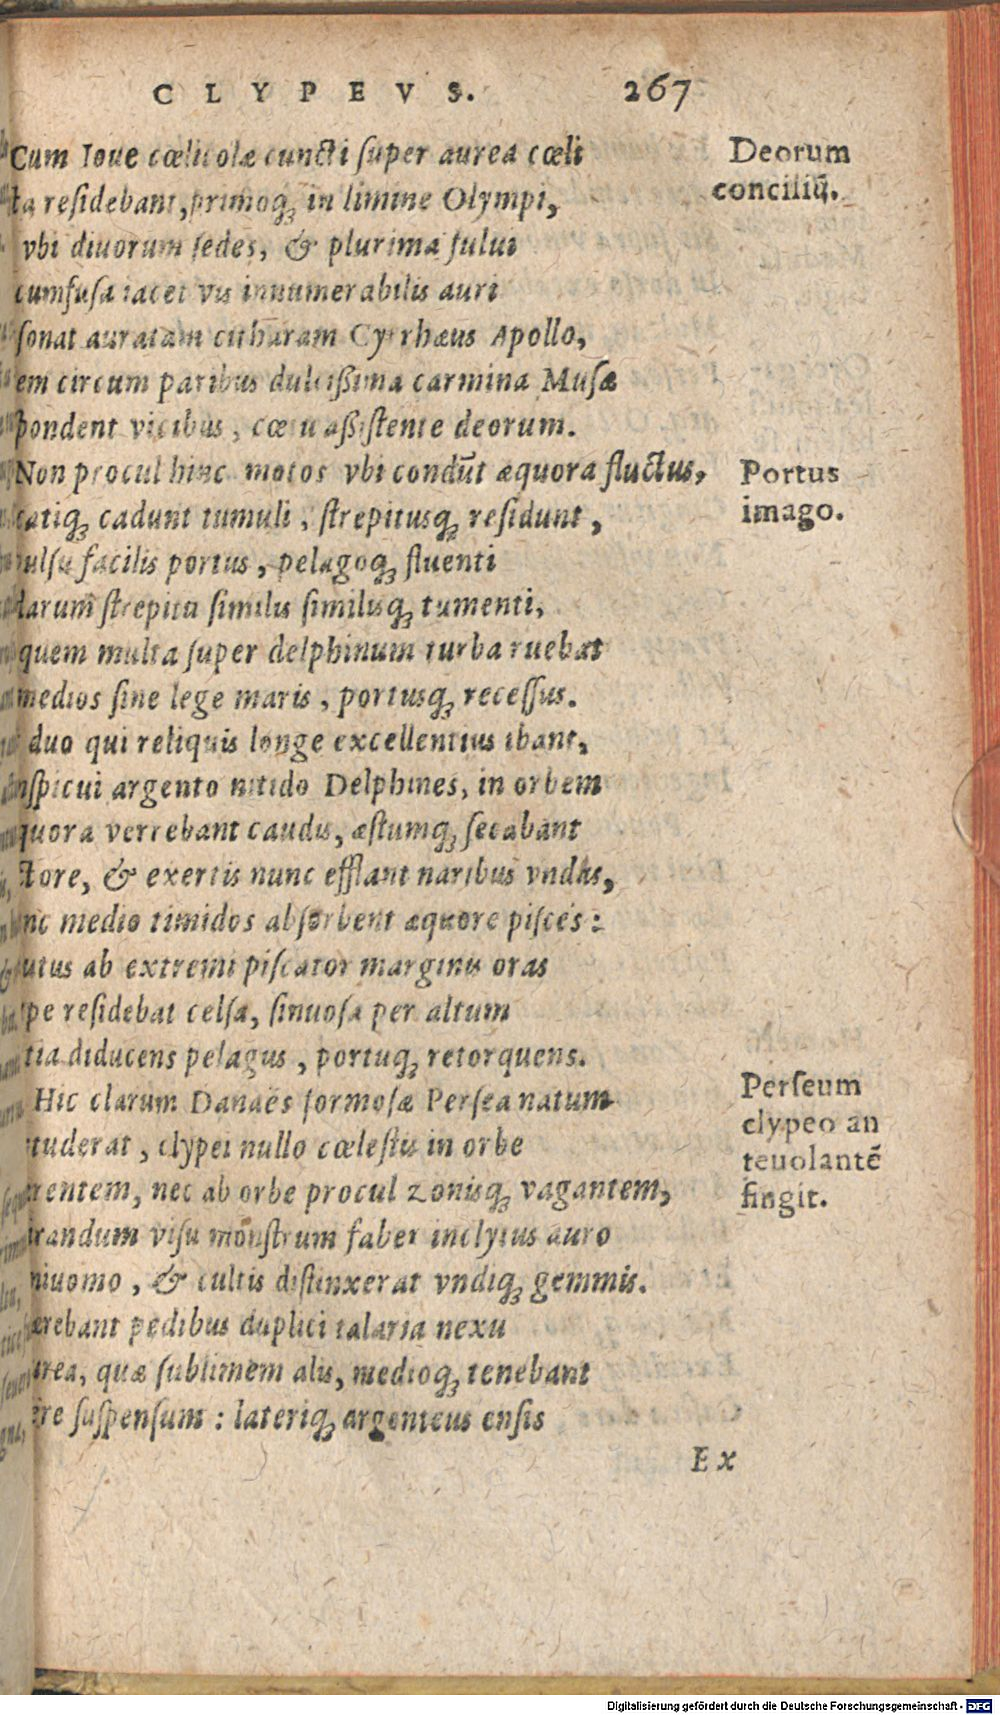 CLYPEVS. 267
Cum Ioue cœlicolæ cuncti ſuper aurea cœli
ta reſidebant, primoq́ꝫ in limine Olympi,
vbi diuorum ſedes, & plurima fului
cumfuſa iacet vis innumerabilis auri
ſonat auratam citharam Cyrrhæus Apollo,
em circum paribus dulciſsima carmina Muſæ
pondent vicibus, cœtu aſsiſtente deorum.
Non procul hinc motos vbi condūt æquora fluctus,
catiq́ꝫ cadunt tumuli, ſtrepituſq́ꝫ reſidunt,
ulſu facilis portus, pelagoq́ꝫ fluenti
darum ſtrepitu ſimilis ſimiliſq́ꝫ tumenti,
quem multa ſuper delphinum turba ruebat
medios ſine lege maris, portuſq́ꝫ receſſus.
duo qui reliquis longe excellentius ibant,
nſpicui argento nitido Delphines, in orbem
quora verrebant caudis, æſtumq́ꝫ ſecabant
ctore, & exertis nunc efflant naribus vndas,
nc medio timidos abſorbent æquore piſces:
utus ab extremi piſcator marginis oras
pe reſidebat celſa, ſinuoſa per altum
tia diducens pelagus, portuq́ꝫ retorquens.
Hic clarum Danaës formoſæ Perſea natum
tuderat, clypei nullo cœleſtis in orbe
rentem, nec ab orbe procul zoniſq́ꝫ vagantem,
irandum viſu monſtrum faber inclytus auro
niuomo, & cultis diſtinxerat vndiq́ꝫ gemmis.
ærebant pedibus duplici talaria nexu
urea, quæ ſublimem alis, medioq́ꝫ tenebant
ëre ſuſpenſum: lateriq́ꝫ argenteus enſis
Ex
Deorum
conciliū.
Portus
imago.
Perſeum
clypeo an
teuolantē
fingit.
Digitalisierung gefördert durch die Deutsche Forschungsgemeinschaft - DFG